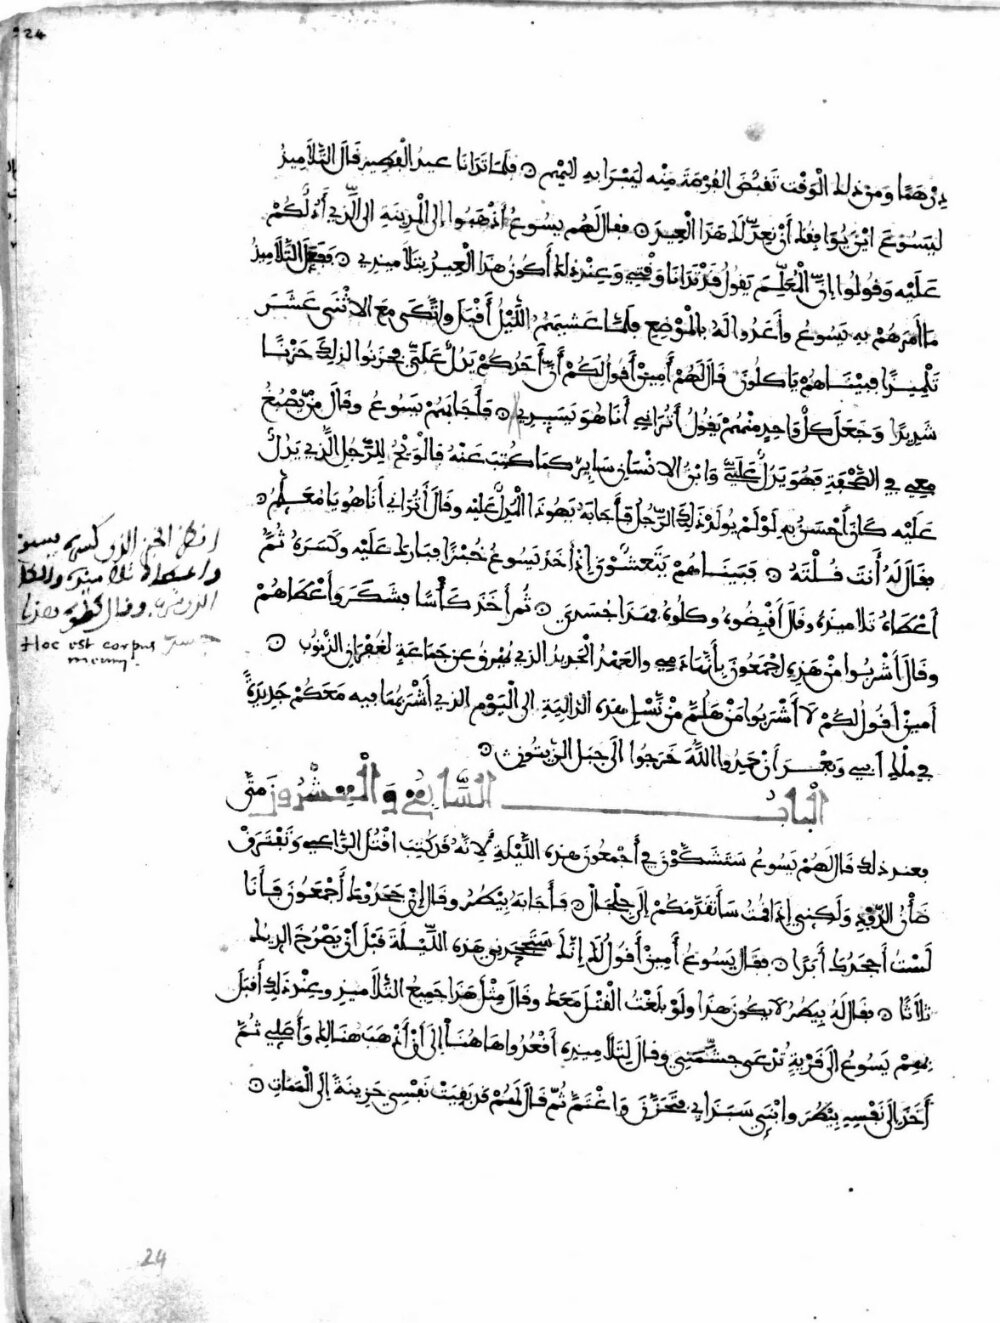 24
دِرْهَمًا وَمِنْ ذلك الْوَقْت تَقَبَّضَ الفُرْصَةَ مِنْه لِيَبْرَا بِهِ إليْهِم ۞ فلمّا تَدَانَا عيدُ الْفَصِيرِ قَالَ التَّلَامِيذُ
ليَسُوعَ ايْنَ يُوَافِقُك أنْ نعِدَّ لكَ هَذَا الْعِيدَ ۞ فقال لَهُم يسوعُ اذْهَبُوا إلى الْمدِينَةِ الى الَّذِي أدُلُّكُمْ
عَلَيْه وَقُولُوا إنَّ الْمُعَلِّمَ يَقولُ قَدْ تَدَانَا وَقْتِي وَعِنْدَك أكُونُ هَذَا الْعِيدَ بِتَلَامِيذِي ۞ فَفَعَلَ التَّلَامِيذُ
مَا أمَرَهُمْ بِهِ يَسُوعُ وأعَدُّوا لَهُ بالْمَوْضِعِ فلمّا عَشيَتهُمُ اللَّيْلُ أقْبَلَ واتَّكَى مَعَ الاثْنَى عَشَرَ
تَلْمِيذًا فبَيْنَاهُمْ يَاكلُونَ قَالَ لَهُمْ أمِينْ أقُولُ لَكُمْ أنَّ أحَدَكُمْ يَدُلُّ عَلَيَّ فحَزَنُوا لذلِكَ حَزْنًا
شَدِيدًا وَجَعَلَ كلُّ وَاحِدٍ مِنْهُمْ يَقُولُ أتُرَانِي أنَا هُوَ يَسَيِدِي ۞ فأجَابَهُمْ يَسُوعُ وقَالَ مَنْ يَصْبُغُ
مَعِي فِي الصَّحْفَةِ فَهُوَ يَدُلُّ عَلَيَّ وَابْنُ الانْسَانِ سَايِرٌ كمَا كُتِبَ عَنْهُ فالْوَيْحُ لِلرَّجُلِ الَّذِي يَدُلُّ
عَلَيْه كَانَ أحْسَنُ بِهِ لوْ لَمْ يُولَدْ ذَلِكَ الرَّجُلُ فأجَابَهُ يَهُوذَا الْمُدِلُّ عَلَيْهِ وقَالَ أتُرَانِي أنَا هُوَ يَا مُعَلِّمُ ۞
فقَالَ لَهُ أنتَ قُلْتَهُ ۞ فبَيْنَاهُمْ يَتَعَشَّوْنَ إذْ أخَذَ يَسُوعُ خُبْزًا فبَارَك عَلَيْه وكَسَرَهُ ثُمَّ
أعْطَاهُ تَلَامِيذَهُ وقَالَ اقْبِضُوهُ وكلُوهُ فهَذَا جَسَدِي ۞ ثُمَّ أخَذَ كَأسًا فشَكَرَ وَأعْطَاهُمْ
وقَالَ أشْرَبُوا مِنْ هَذِهِ أجْمَعُونَ فإنَّها دَمِي والعَهْدُ الْجَدِيدُ الذي يُهْرَقُ عن جَمَاعَةٍ لغُفْرَانِ الذُّنُوبِ ۞
أمينْ أقُولُ لكُمْ لا أشْرَبُوا مِنْ هَلُمَّ مِنْ نَّسْلِ هَذِهِ الدَّالِيَةِ إلى الْيَوْمِ الذي أشْرَبُهَا فيهِ مَعَكُمْ جَدِيدَةً
فِي مُلْكِ أبِي وبَعْدَ أنْ حَمِدُوا اللَّهَ خَرَجُوا الَى جَبَلِ الزَّيْتُونِ ۞
الْبَابُ السَّابِعُ وَالْعِشْرُونَ مَتَّى
بعْدَ ذَلِكَ قَالَ لَهُمْ يَسُوعُ سَتَشُكُّونَ فِي أجْمَعُونَ هَذِهِ اللَّيْلَةَ لِانَّهُ قَدْ كُتِبَ اقْتُلِ الرَّاعِي وَتَفْتَرِقْ
ضَأنُ الذَّوْدِ وَلَكِنِي إذَا قُمْتُ سَأتَقَدَّمُكُمْ إلَى جِلْجَالْ ۞ فأجَابَهُ بِيْطُرُ وقَالَ إنْ جَحَدُوكَ أجْمَعُونَ فَأنَا
لَسْتُ أجْحَدُكَ أبَدًا ۞ فقَالَ يَسُوعُ أمِينْ أقُولُ لكَ إنَّكَ سَتَجْحَدُنِي هَذِهِ اللَّيْلَةَ قَبْلَ أنْ يَصْرُخَ الدِيكُ
ثلَاثًا ۞ فقَالَ لَهُ بِيطُرُ لا يَكُونُ هَذَا ولَوْ بلَغْتُ الْقَتْلَ مَعَكَ وقَالَ مِثْلَ هَذَا جَمِيعُ التَّلَامِيذِ وعِنْدَ ذَلِكَ أقْبَلَ
بهِمْ يَسُوعُ الَى قَرْيَةٍ تُدْعَى جشّمَنِي وقَالَ لِتَلَامِيذِهِ أقْعُدُوا هَاهُنَا إلَى أنْ أذْهَبَ هُنَالِكَ وَأصَلِّي ثُمَّ
أخَذَ إلَى نَفْسِهِ بِيْطُرَ وابْنَيْ سَبَذَايِ فتَحَزَّنَ وَاغْتَمَّ ثُمَّ قَالَ لَهُمْ قَدْ بَقِيَتْ نَفْسِي حَزِينَةً إلَى الْمَمَاتِ ۞
انظر الخبز الذي كسره يسوع
واعطاه تلاميذه
وقال كلوه هذا
جسدي
Hoc est corpus
meum
24